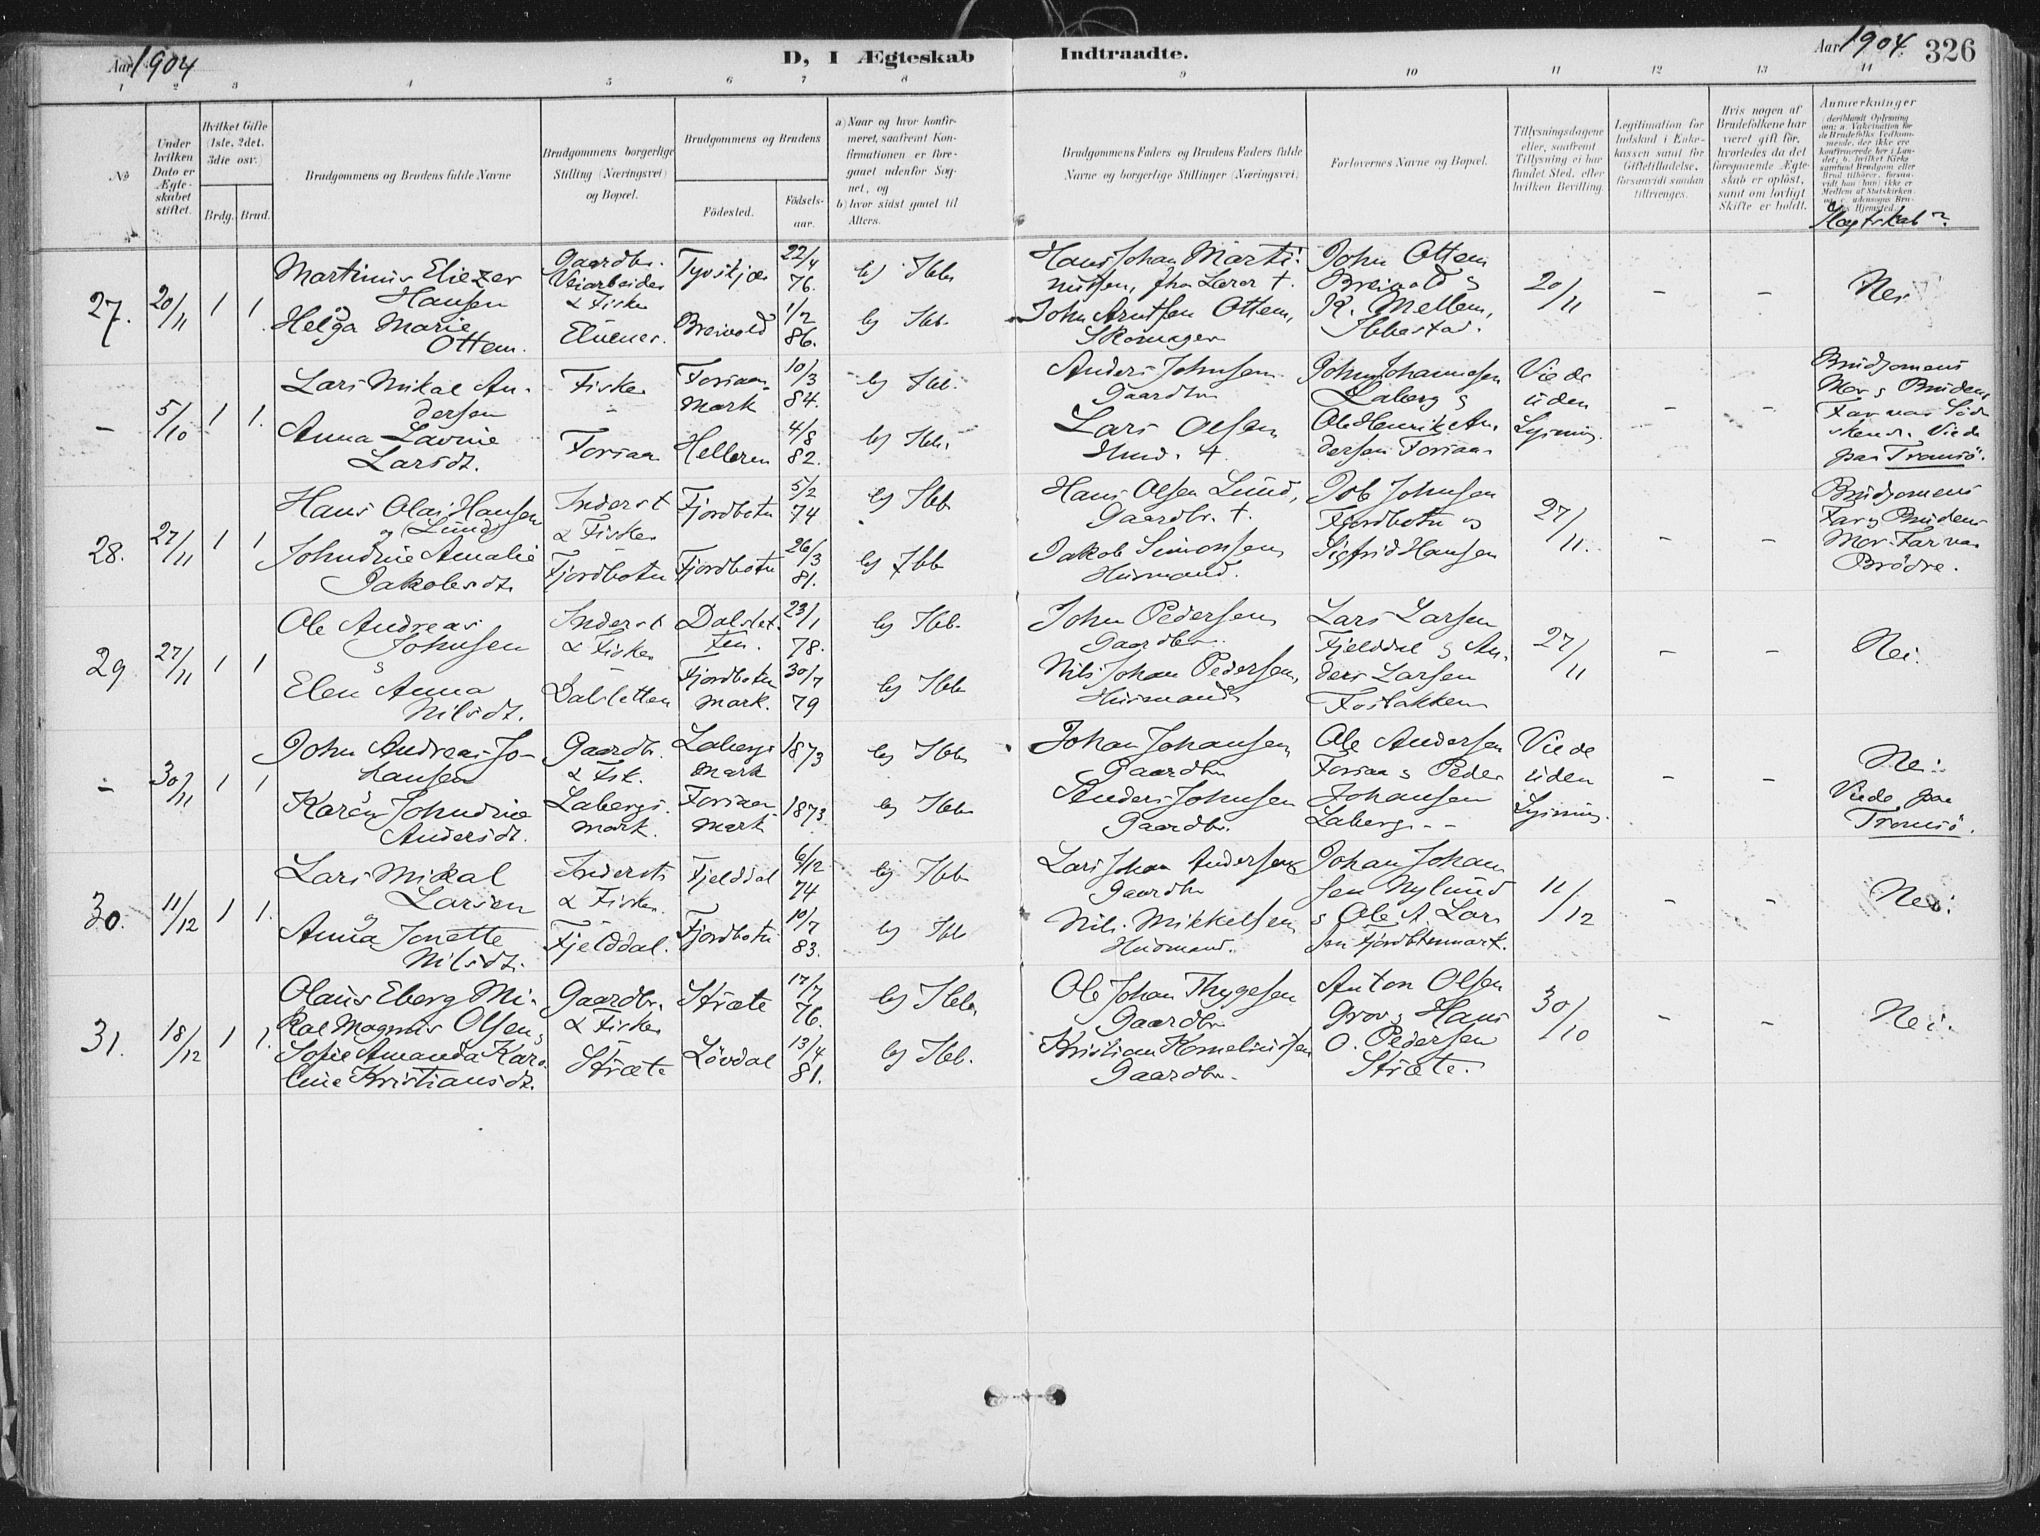 Aar 1904
D, I Ægteskab Indtraadte.
Aar 1904. 326
1 2 3 4 5 6 7 8 9 10 11 12 13 14
No
Under hvilken Dato er Ægteskabet stiftet.
Hvilket Gifte (1ste, 2det, 3die osv.)
Brdg. Brud.
Brudgommens og Brudens fulde Navne
Brudgommens borgerlige Stilling (Næringsvei) og Bopæl.
Brudgommens og Brudens
Födested.
Födselsaar.
a) Naar og hvor konfirmeret, saafremt Konfirmationen er foregaaet udenfor Sognet, og
b) hvor sidst gaaet til Alters.
Brudgommens Faders og Brudens Faders fulde Navne og borgerlige Stillinger (Næringsvei)
Forlovernes Navne og Bopæl.
Tillysningsdagene eller, saafremt Tillysning ei har fundet Sted, efter hvilken Bevilling.
Legitimation for Indskud i Enkekassen samt for Giftetilladelse, forsaavidt saadan tiltrænges.
Hvis nogen af Brudefolkene har været gift før, hvorledes da det foregaaende Ægteskab er oplöst, samt om lovligt Skifte er holdt.
Anmærkninger
Slægtskab?
27. 20/11 1 1.
Martinus Eliezer
Hansen
og
Helga Marie
Ottem.
Gaardbr.
Veiarbeider
& Fisker
Elvenes.
Tyvskjær
22/4
76.
Breivold
1/2
86.
b) Ibb.
b) Ibb.
Hans Johan Marti-
nussen, fhv Lærer †.
John Arntsen Ottem,
Skomager
John Ottem
Breivold og
R. Mellem,
Ibbestad.
20/11
– –
Nei
– 5/10 1 1.
Lars Mikal An-
dersen
Anna Lavine
Larsdt.
Fisker
Forsaa
Forsaa-
mark
10/3
84.
Helleren
4/8
82.
b) Ibb.
b) Ibb.
Anders Johnsen
Gaardbr
Lars Olsen
Husm. †
John Johannesen
Laberg og
Ole Henrik An-
dersen Forsaa
Viede
uden
Lysning.
– –
Brudgomens
Mor og Brudens
Far var Søs-
kend. Viede
paa Tromsö.
28. 27/11 1 1
Hans Olai Hansen
og (Lund)
Johndine Amalie
Jakobsdt.
Inderst
& Fisker
Fjordbotn
Fjordbotn
5/2
74
Fjordbotn
26/3
81.
b) Ibb
b) Ibb
Hans Olsen Lund,
Gaardbr. †.
Jakob Simonsen
Husmand.
Job Johnsen
Fjordbotn og
Sigfrid Hansen
27/11.
– –
Brudgomens
Far og Brudens
Mor. Far var
Brödre.
29 27/11 1 1
Ole Andreas
Johnsen
og
Elen Anna
Nilsdt.
Inderst
& Fisker
Dalsletten
Dalslet-
ten.
23/1
78.
Fjordbotn
mark.
30/7
79
b) Ibb.
b) Ibb
John Pedersen
Gaardbr.
Nils Johan Pedersen,
Husmand
Lars Larsen
Fjelddal og An-
ders Larsen
Fosbakken
27/11
– –
Nei.
– 30/11 1 1
John Andreas Jo-
hansen
Karen Johndine
Andersdt.
Gaardbr.
& Fisk.
Labergs-
mark.
Labergs
mark
1873
Forsaa
mark
1873.
b) Ibb
b) Ibb
Johan Johansen
Gaardbr
Anders Johnsen
Gaardbr.
Ole Andersen
Forsaa og Peder
Johansen
Laberg
Viede
uden
Lysning.
– –
Nei
Viede paa
Tromsö.
30. 11/12 1 1.
Lars Mikal
Larsen
og
Anna Jonette
Nilsdt.
Inderst
& Fisker
Fjelddal.
Fjelddal
6/12
74
Fjordbotn
10/7
83.
b) Ibb
b) Ibb
Lars Johan Andersen
Gaardbr
Nils Mikkelsen
Husmand.
Johan Johan
sen Nylund
og Ole A. Lar-
sen Fjordbotnmark.
11/12
– –
Nei
31. 18/12 1 1.
Olaus Eberg Mi-
kal Magnus Olsen og
Sofie Amanda Karo-
line Kristiansdt.
Gaardbr.
& Fisker
Stræte
Stræte
17/7
76.
Lövdal
13/4
81.
b) Ibb.
b) Ibb.
Ole Johan Thygesen
Gaardbr
Kristian Kornelius sen
Gaardbr.
Anton Olsen
Grov og Hans
O. Pedersen
Stræte.
30/10
– –
Nei.